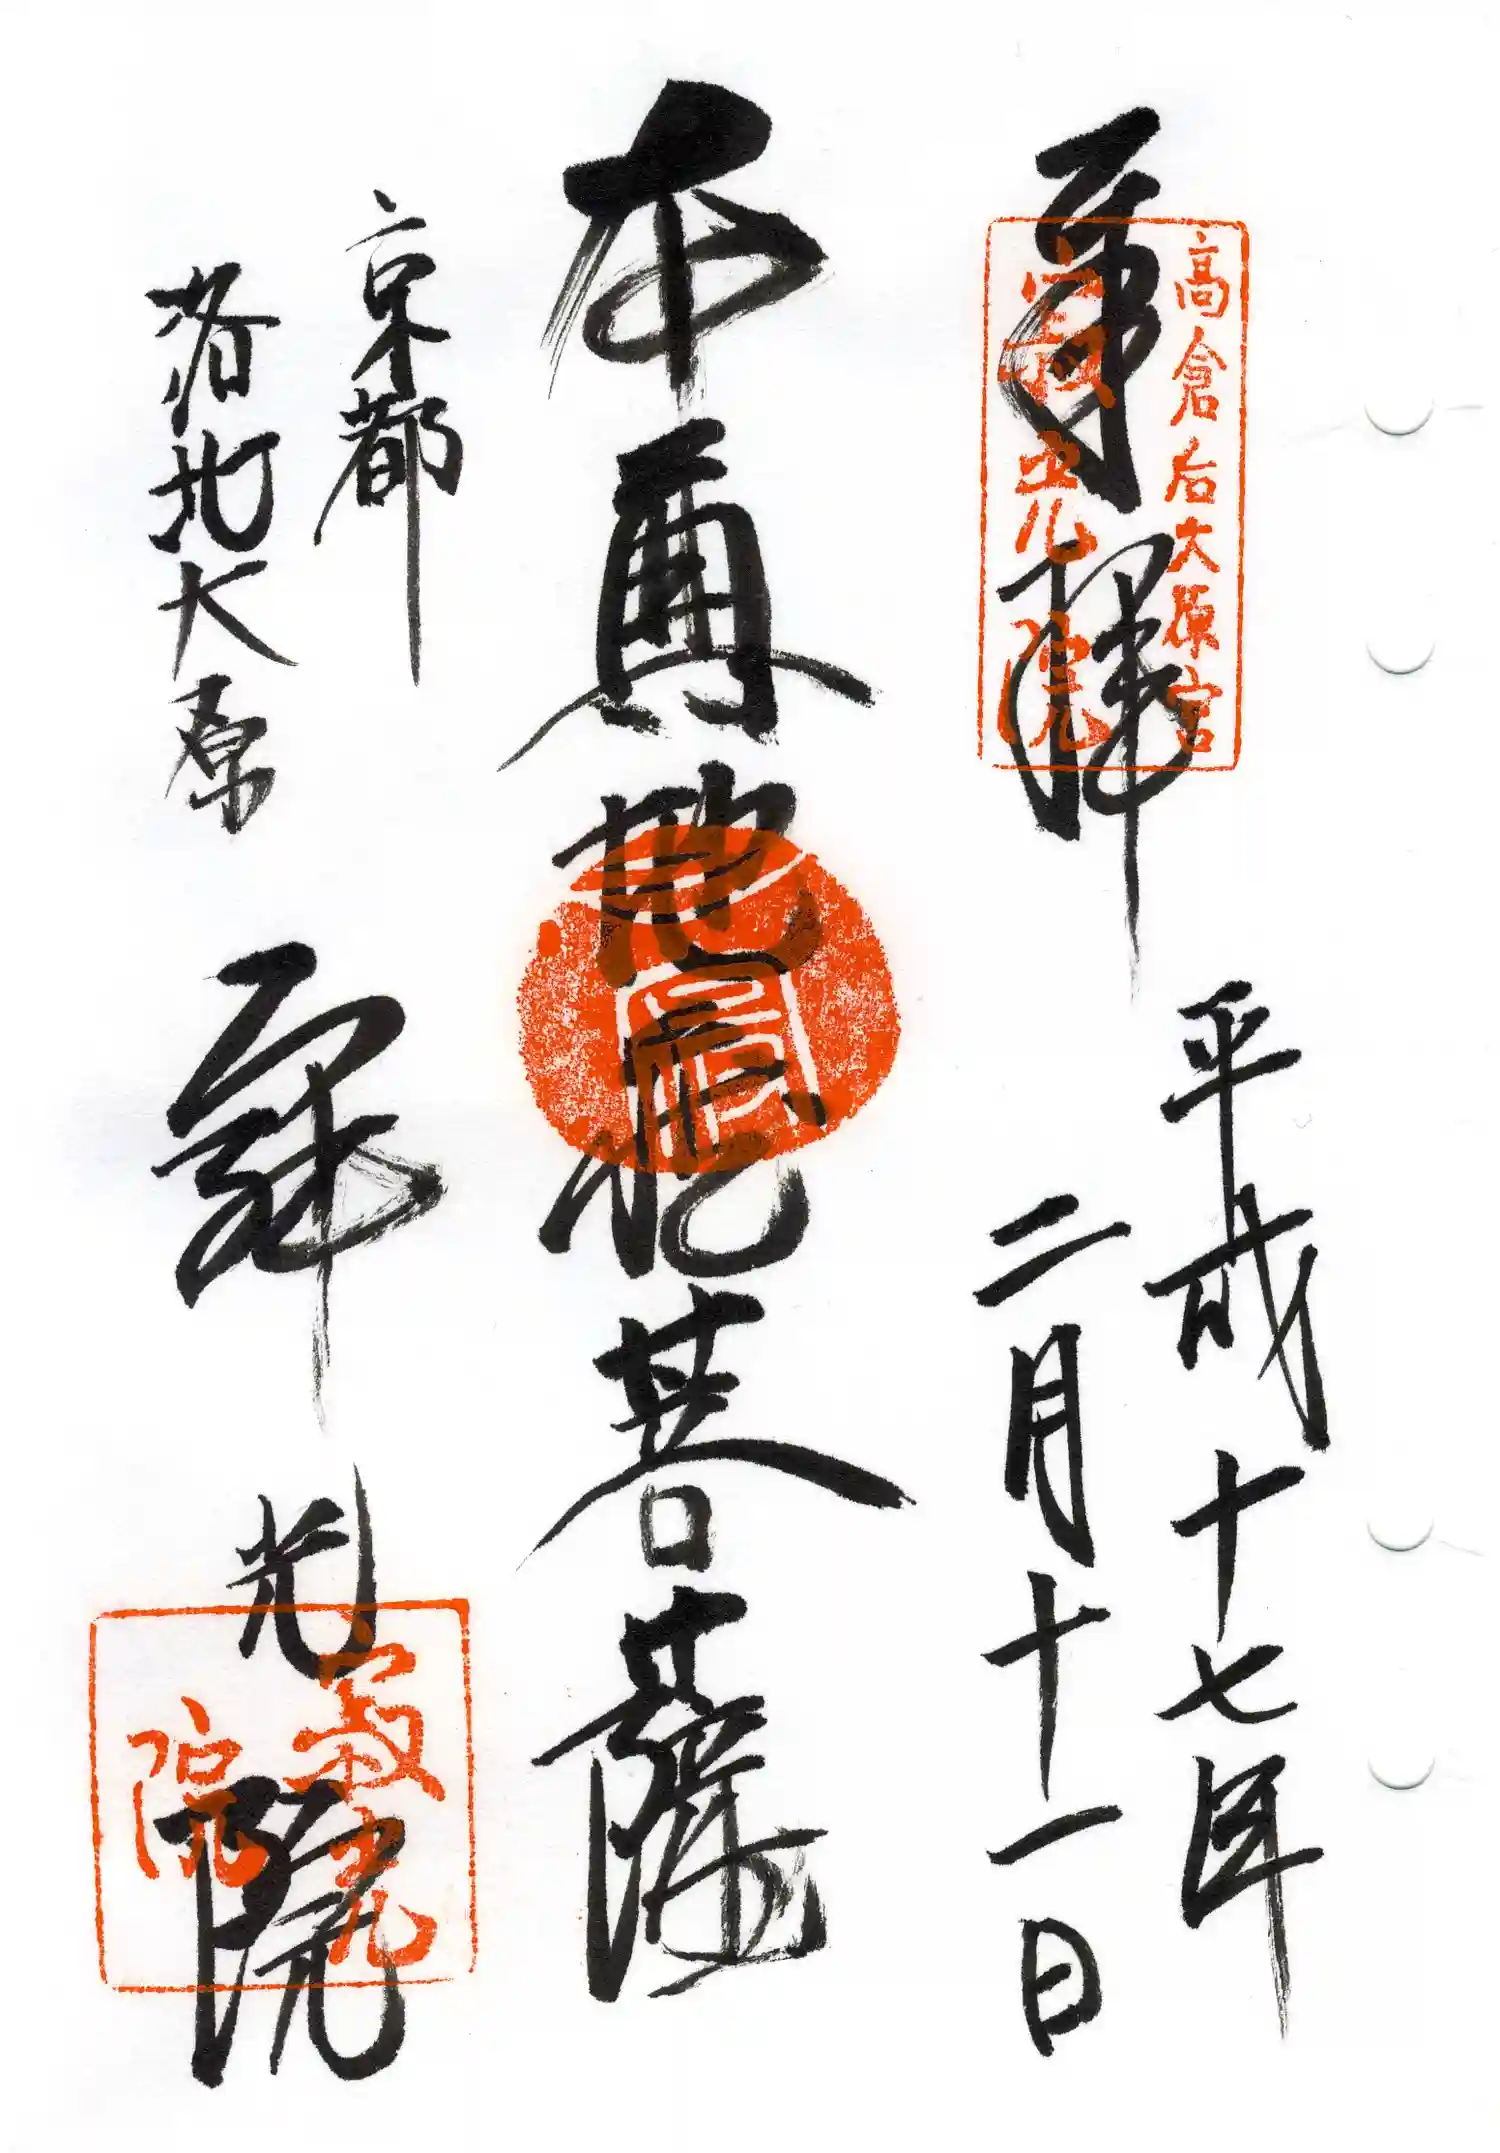 奉拝
高倉后大原宮
寂光院
平成十七年
二月十一日
本尊地蔵菩薩
京都
洛北大原
寂光院
寂光
院